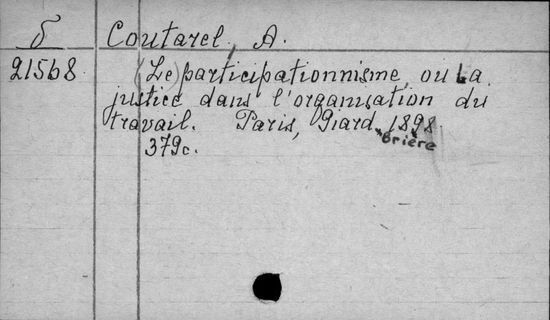 δ
21568
Coutarel, A.
(Le) participationnisme, ou La
justice dans l'organisation du
travail. Paris, Giard 1898
Brière
379c.